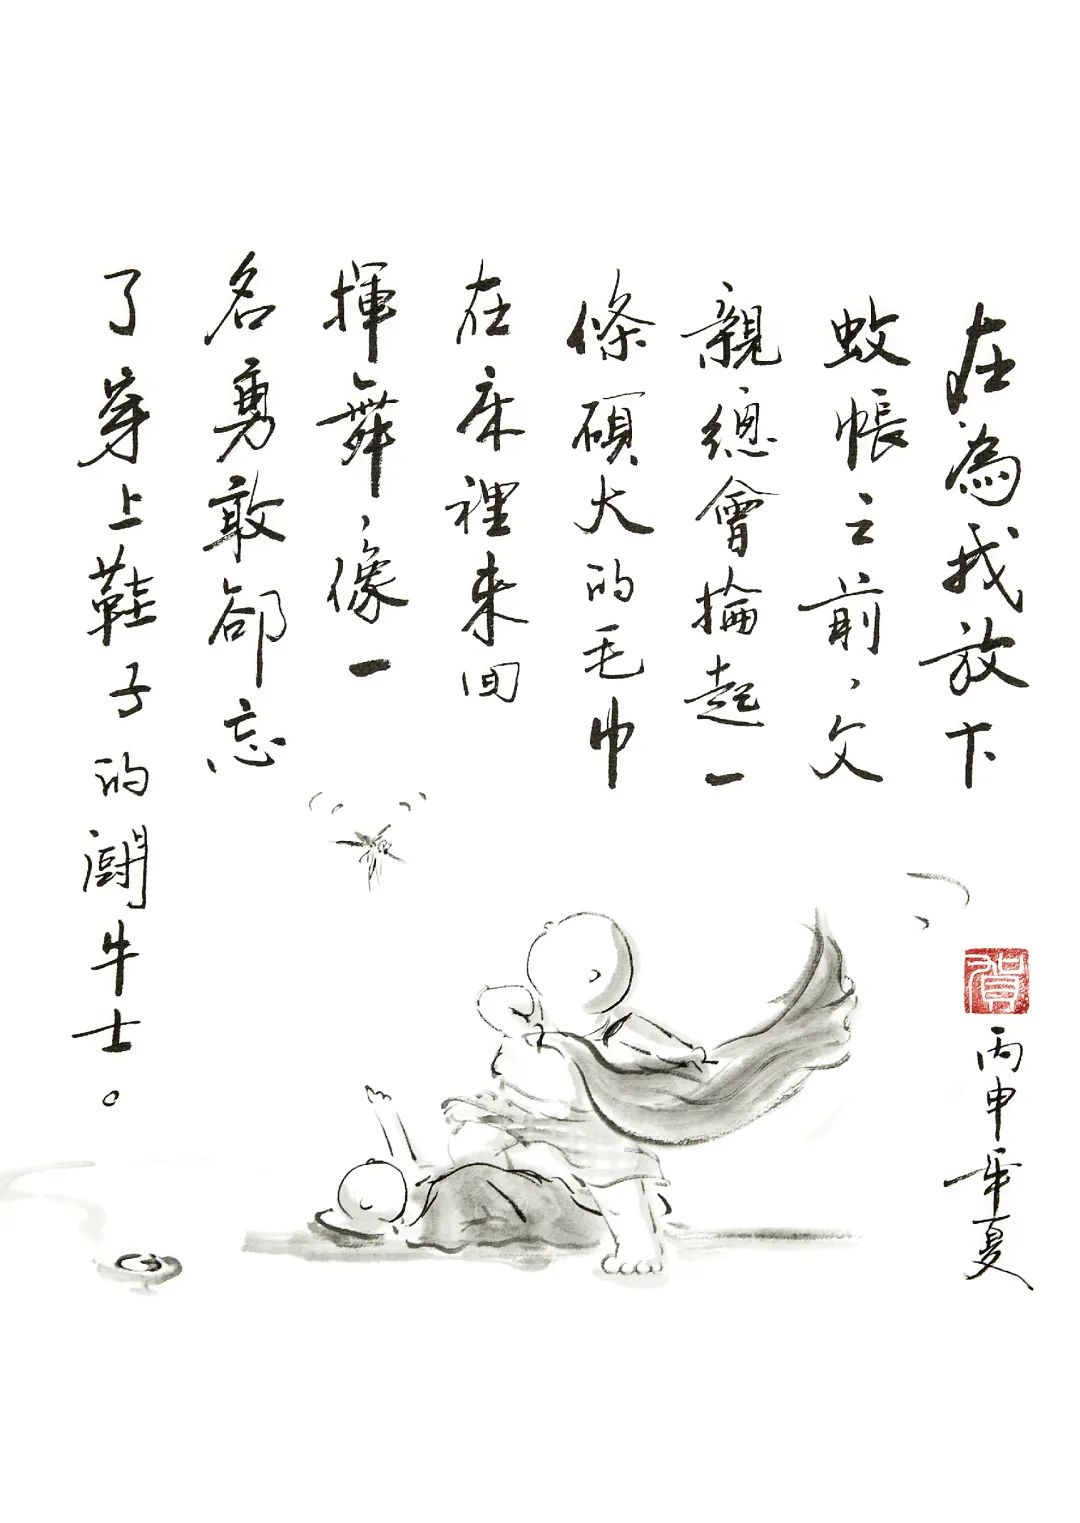 在為我放下
蚊帳之前，父
親總會掄起一
條碩大的毛巾
在床裡來回
揮舞，像一
名勇敢卻忘
了穿上鞋子的鬪牛士。
賀
丙申年夏